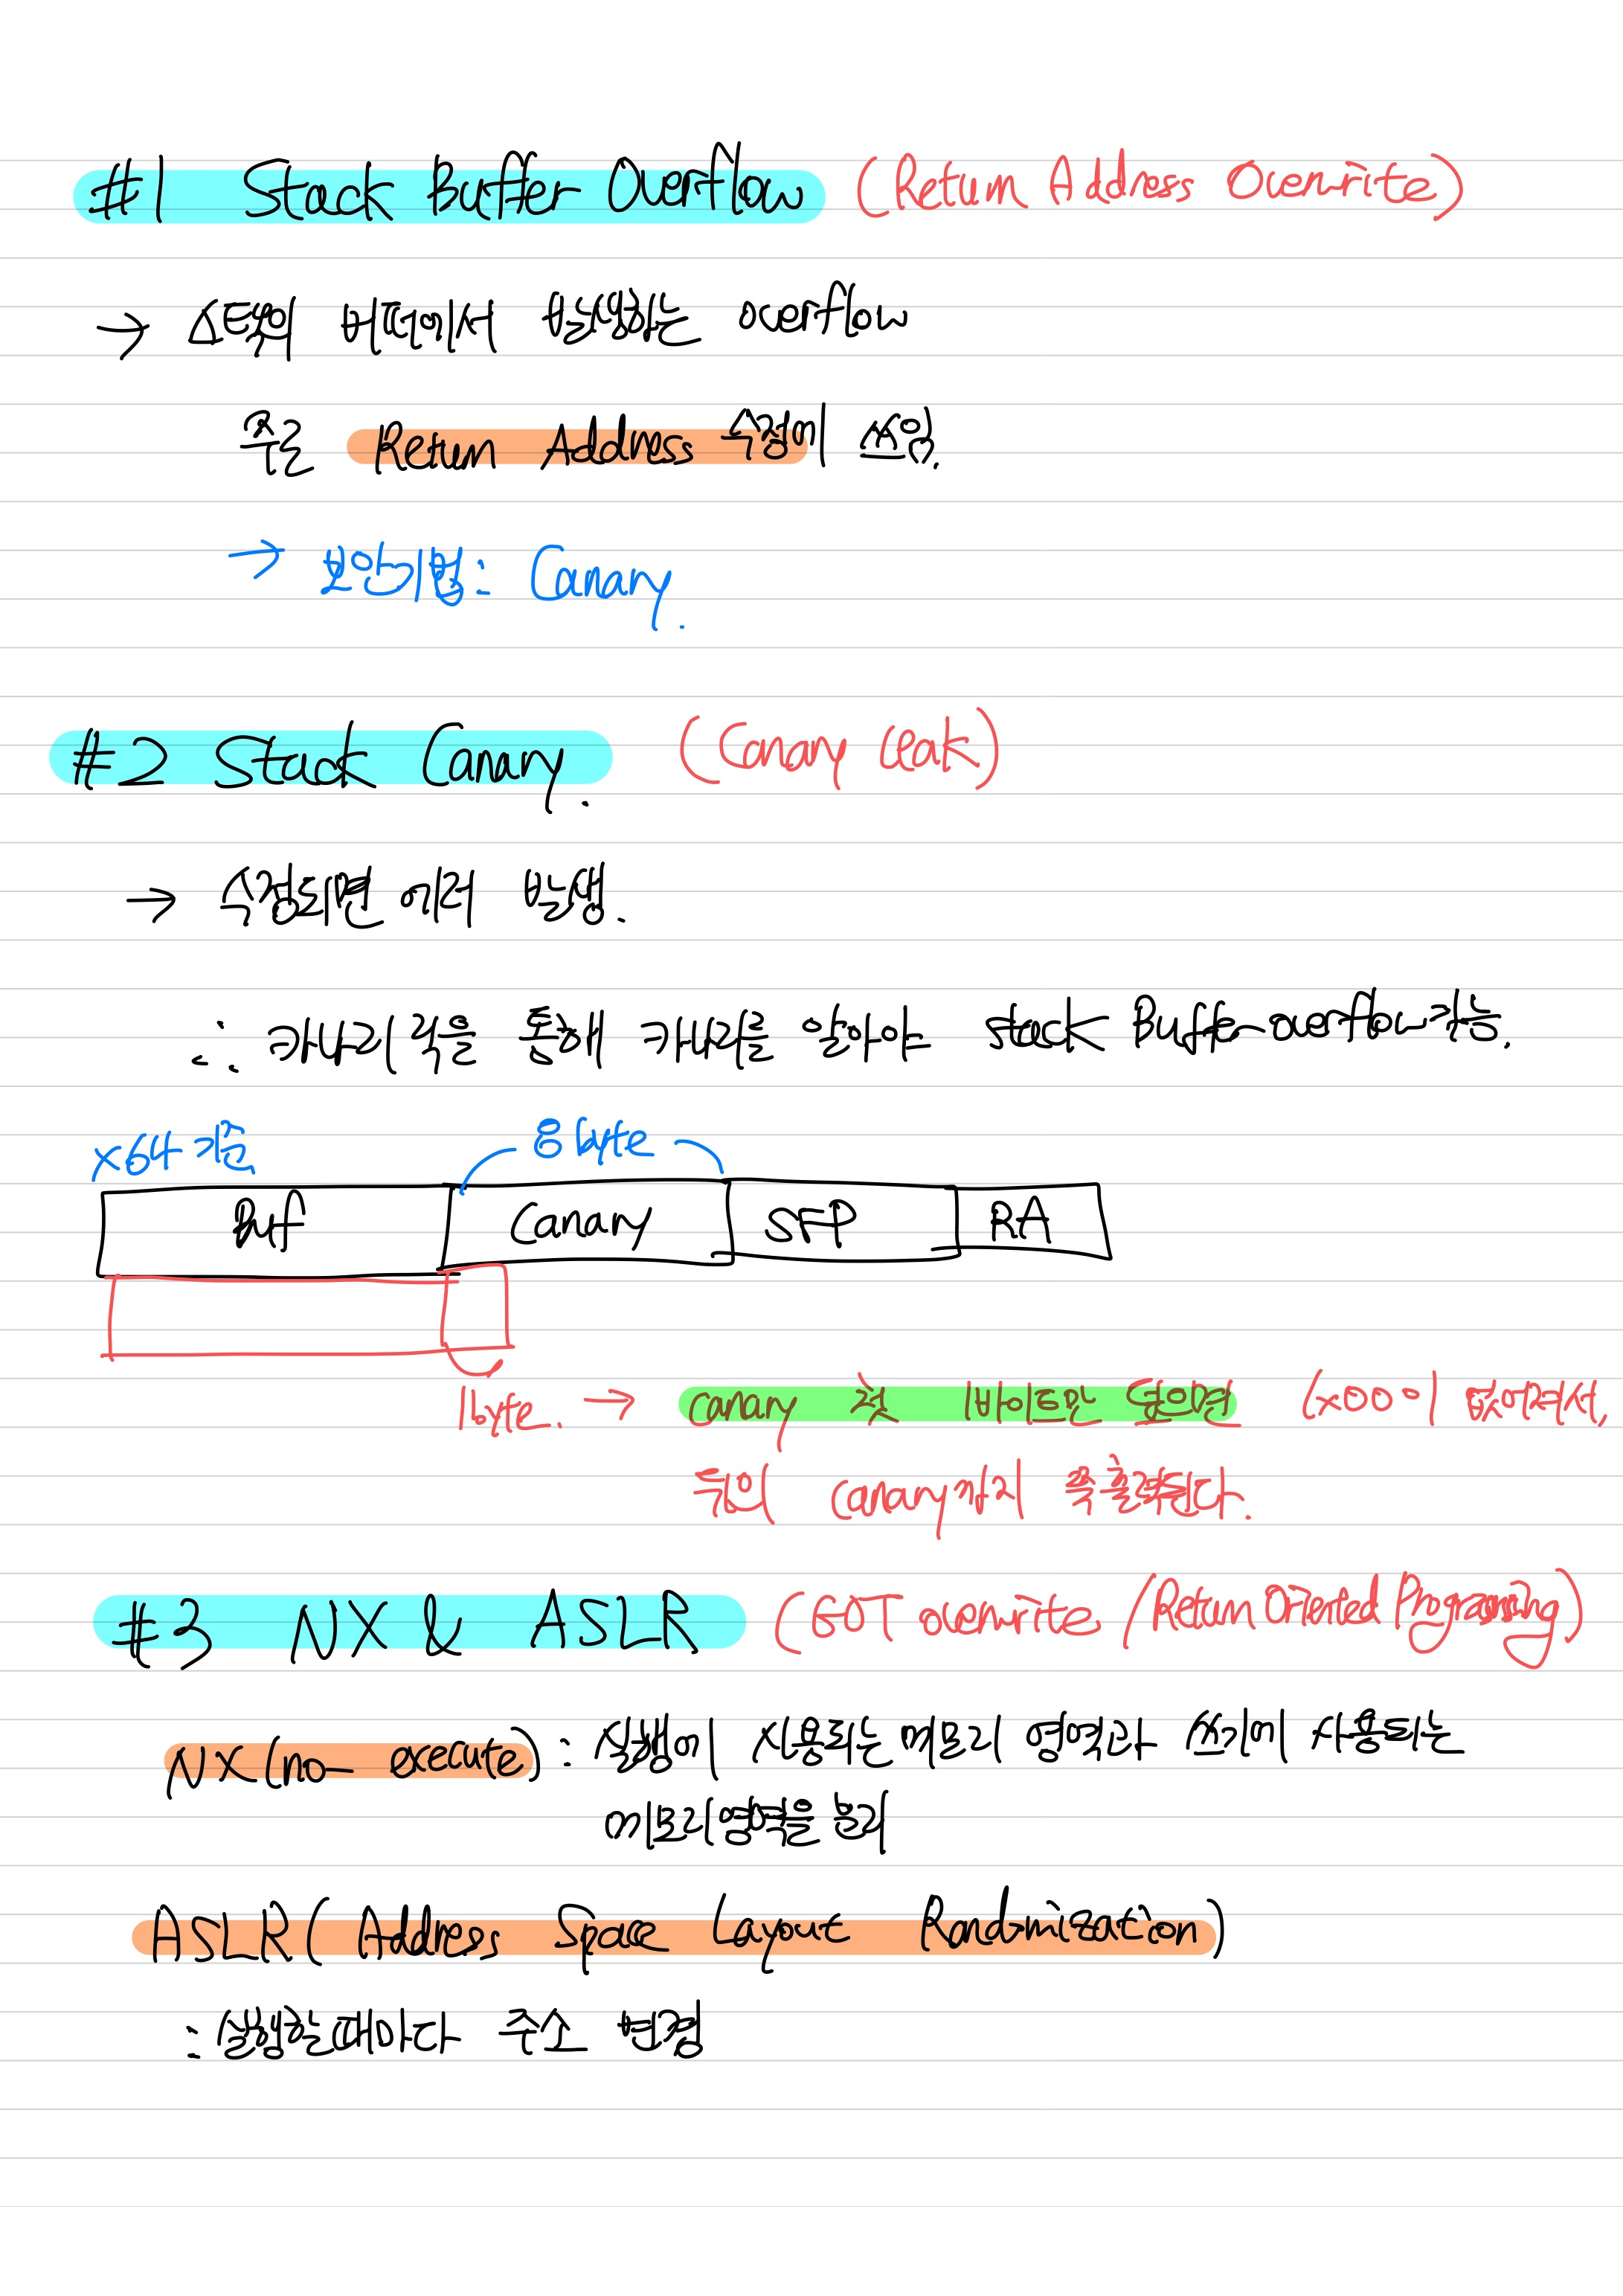 #1 Stack Buffer Overflow (Return Address Overwrite)
→ 스택의 버퍼에서 발생하는 overflow
주로 Return Address 수정에 쓰임.
→ 보안기법: Canary.
#2 Stack Canary. (Canary Leak)
→ 수정되면 에러 발생.
∴ 카나리 릭을 통해 카나리를 알아야 stack Buffer overflow 가능.
x64 기준 8 byte
Buf Canary SFP RA
1byte. → canary 첫 바이트만 덮으면 \x00이 없어져서,
뒤의 canary까지 쭉 출력된다.
#3 NX & ASLR (GOT overwrite / Return Oriented Programming)
NX (no-execute) : 실행에 사용되는 메모리 영역과 쓰기에 사용되는
메모리 영역을 분리
ASLR (Address Space Layout Randomization)
: 실행할 때마다 주소 변경